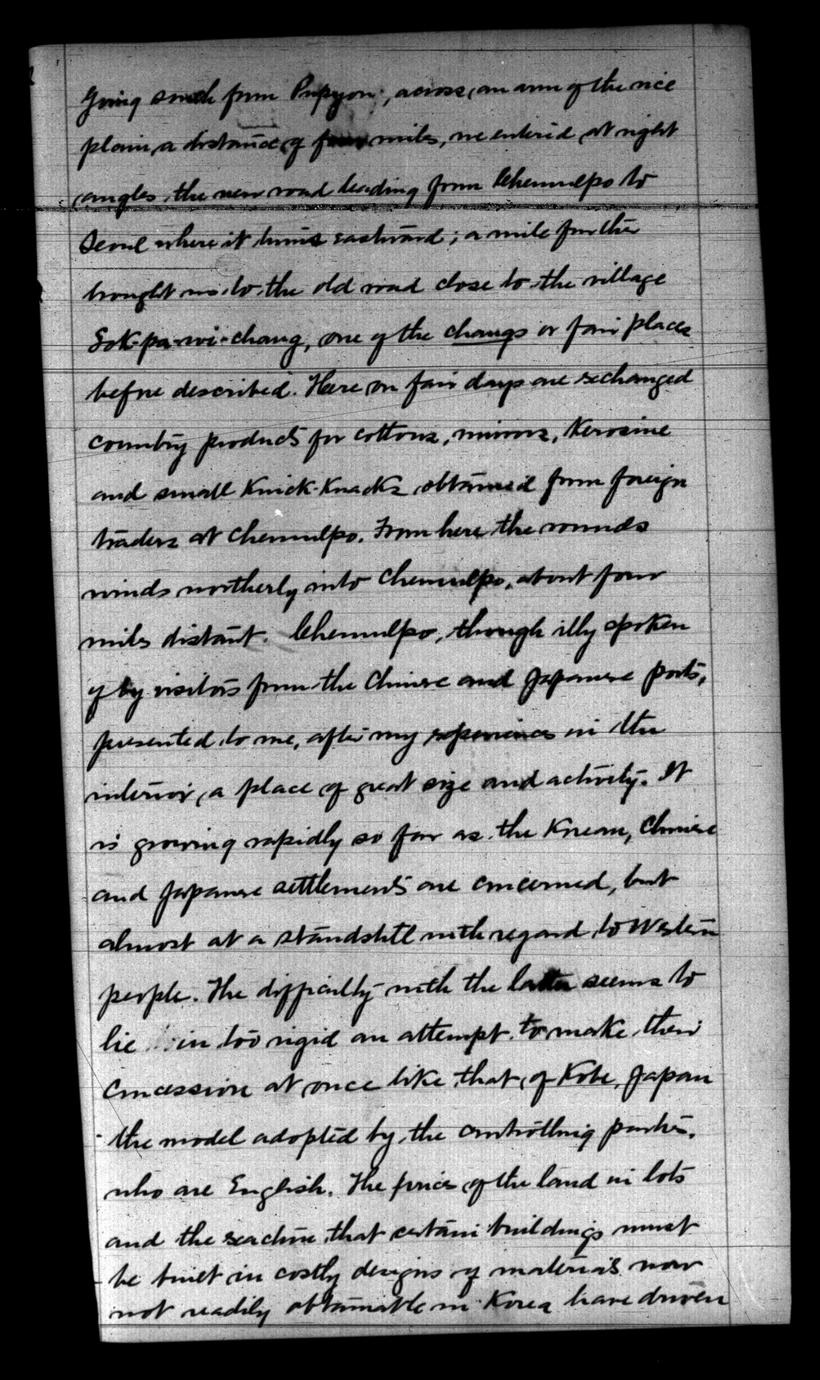 Going south from Pupyon, across, an arm of the rice
plain, a distance of four miles, we entered at right
angles, the new road leading from Chemulpo to
Seoul where it turns eastward; a mile further
brought us to the old road close to the village
Sok-pa-wi-chang, one of the changs or fair places
before described. Here on fair days are exchanged
country products for cottons, mirrors, Kerosine
and small Knick-Knacks obtained from foreign
traders at Chemulpo. From here the rounds
winds northerly into Chemulpo, about four
miles distant. Chemulpo, though illy spoken
of by visitors from the Chinese and Japanese ports,
presented to me, after my experiences in the
interior, a place of great size and activity. It
is growing rapidly so far as the Korean, Chinese
and Japanese settlements are concerned, but
almost at a standstill with regard to Western
people. The difficulty with the latter seems to
lie in too rigid an attempt to make their
concession at once like that of Kobe, Japan
the model adopted by the controlling parties,
who are English. The prices of the land in lots
and the that certain buildings must
be built in costly designs of materials now
not readily obtainable in Korea have driven